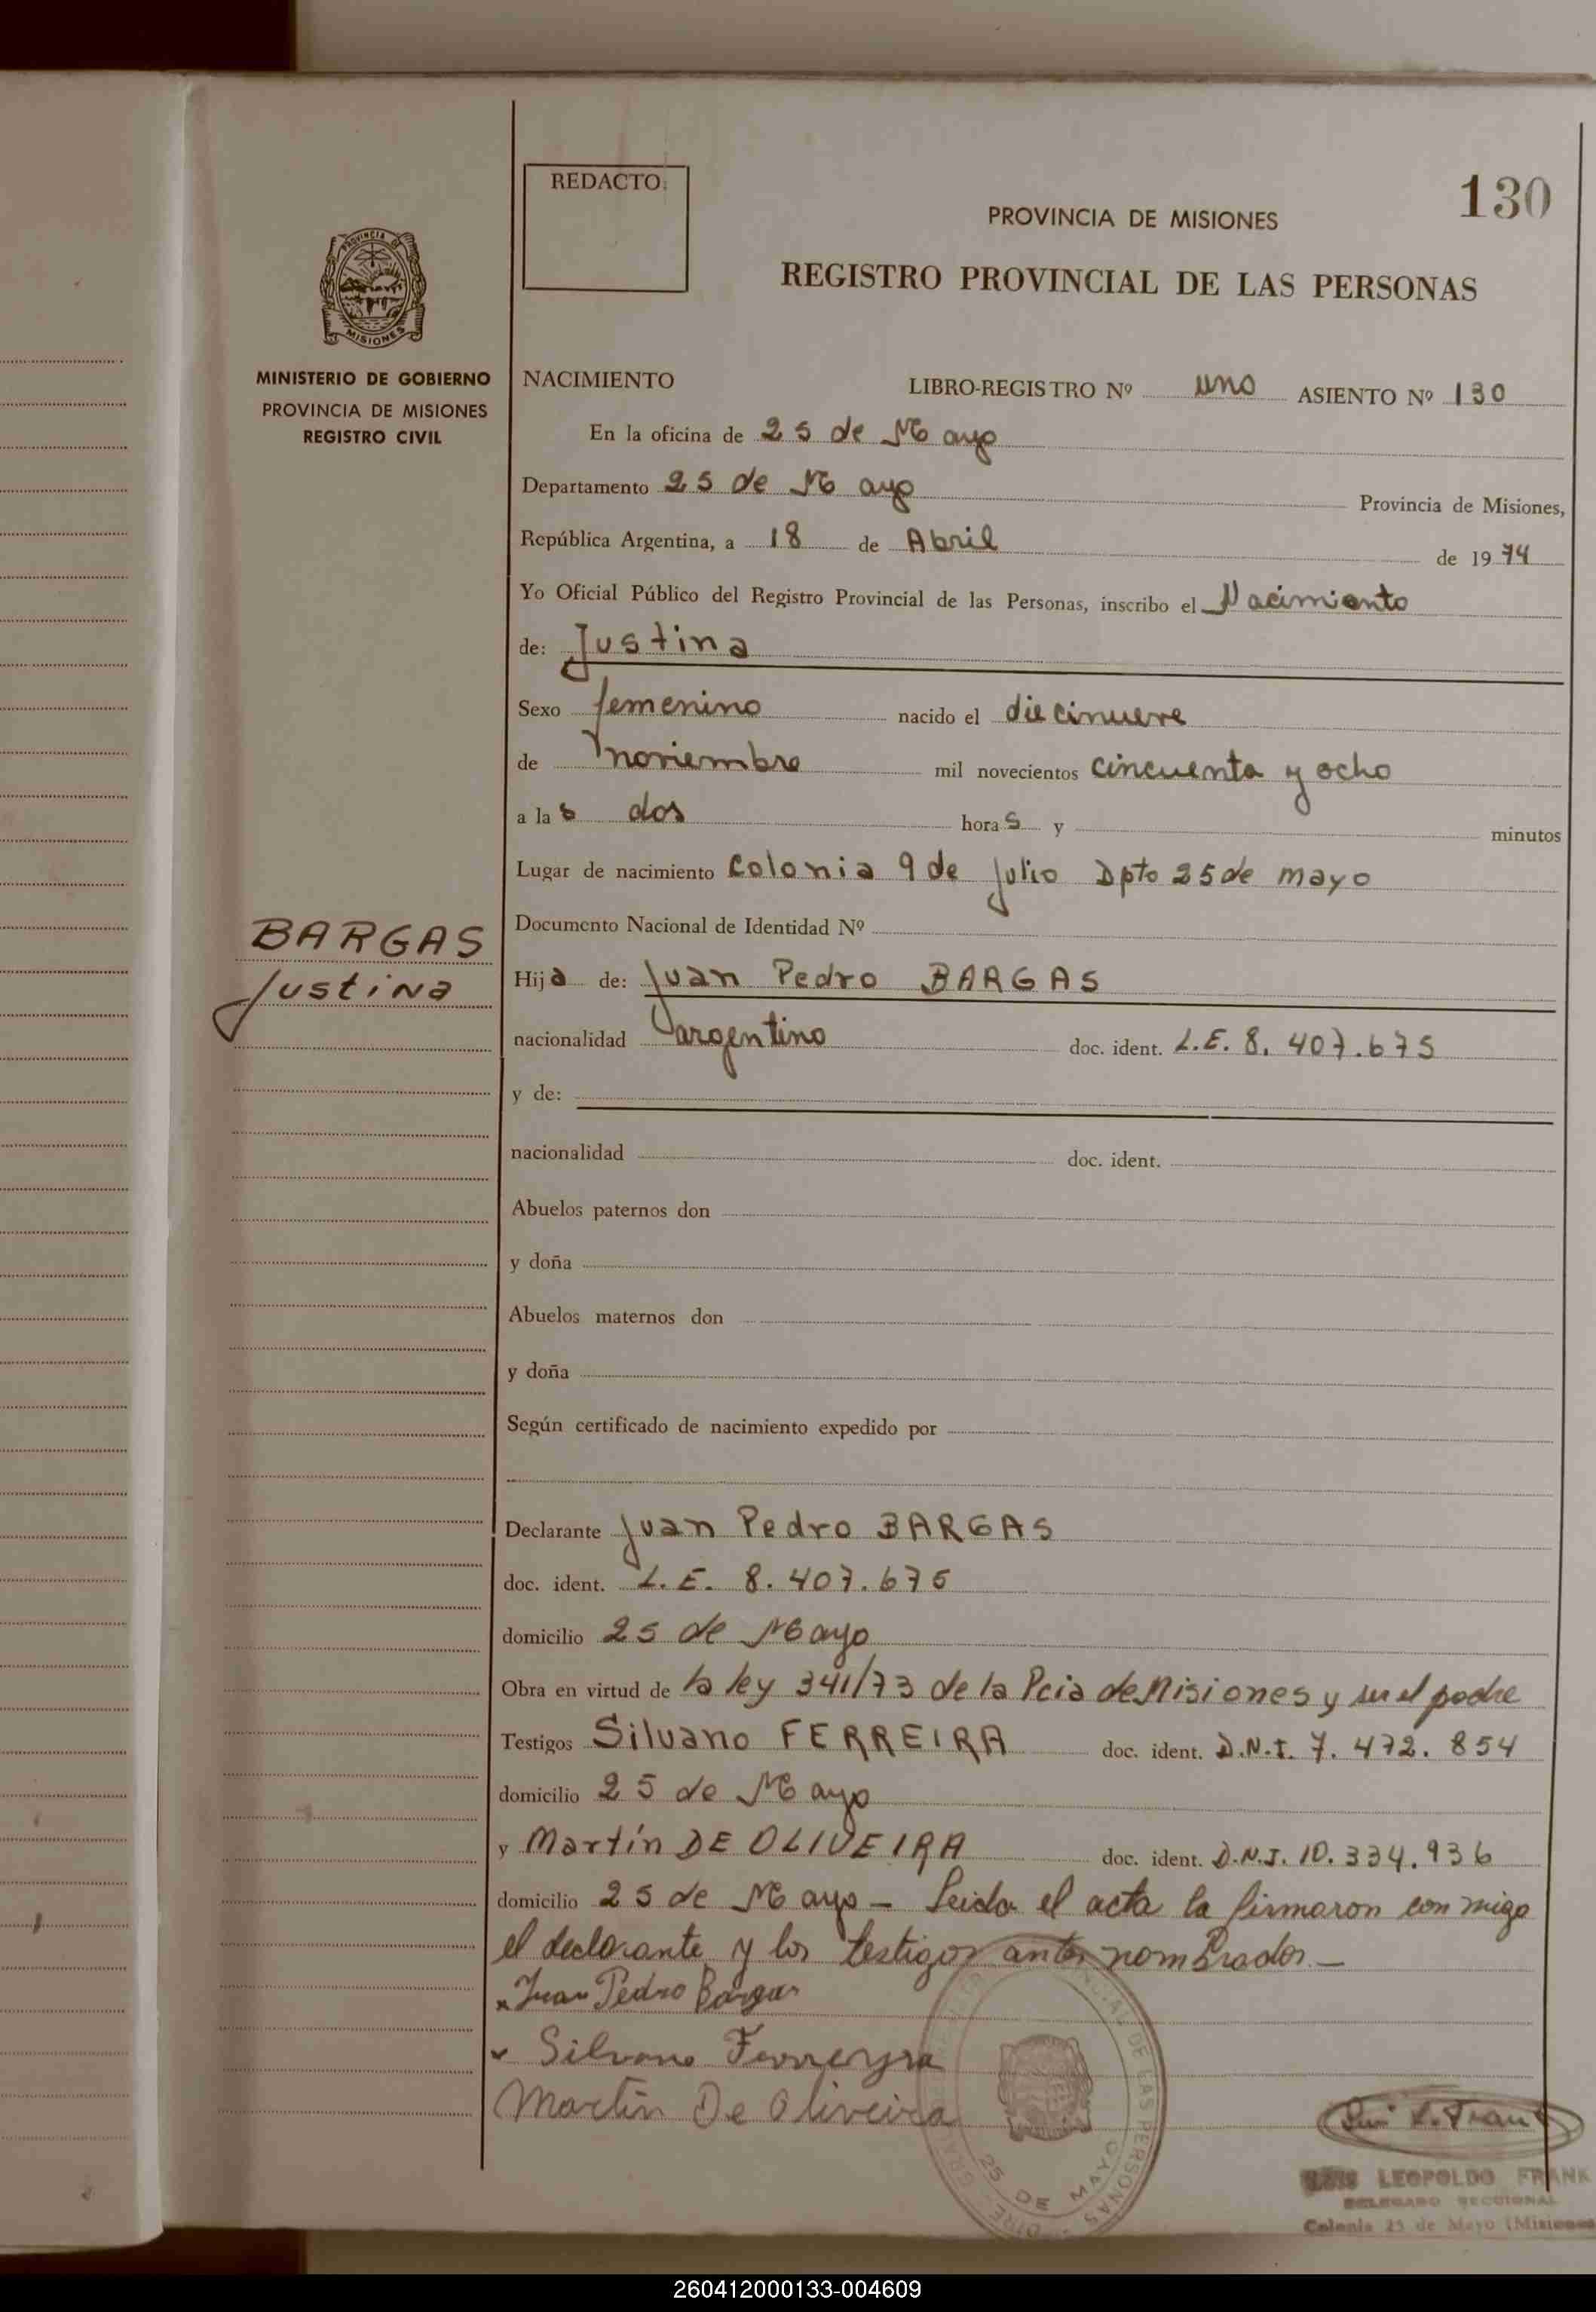 REDACTO:
130
PROVINCIA DE MISIONES
REGISTRO PROVINCIAL DE LAS PERSONAS
PROVINCIA DE
MISIONES
MINISTERIO DE GOBIERNO
PROVINCIA DE MISIONES
REGISTRO CIVIL
NACIMIENTO LIBRO-REGISTRO Nº uno ASIENTO Nº 130
En la oficina de 25 de Mayo
Departamento 25 de Mayo Provincia de Misiones,
República Argentina, a 18 de Abril de 1974
Yo Oficial Público del Registro Provincial de las Personas, inscribo el Nacimiento
de: Justina
Sexo femenino nacido el diecinueve
de noviembre mil novecientos cincuenta y ocho
a las dos horas y minutos
Lugar de nacimiento Colonia 9 de Julio Dpto 25 de mayo
BARGAS
Justina
Documento Nacional de Identidad Nº
Hija de: Juan Pedro BARGAS
nacionalidad argentino doc. ident. L.E. 8.407.675
y de:
nacionalidad doc. ident.
Abuelos paternos don
y doña
Abuelos maternos don
y doña
Según certificado de nacimiento expedido por
Declarante Juan Pedro BARGAS
doc. ident. L.E. 8.407.675
domicilio 25 de Mayo
Obra en virtud de la ley 341/73 de la Pcia de Misiones y ser el padre
Testigos Silvano FERREIRA doc. ident. D.N.I. 7.472.854
domicilio 25 de Mayo
y Martín DE OLIVEIRA doc. ident. D.N.I. 10.334.936
domicilio 25 de Mayo – Leida el acta la firmaron con migo
el declarante y los testigos antes nombrados.—
x Juan Pedro Bargas
x Silvano Ferreyra
Martín De Oliveira
25 DE MAYO
LEOPOLDO FRANK
DELEGADO SECCIONAL
Colonia 25 de Mayo (Misiones
260412000133-004609